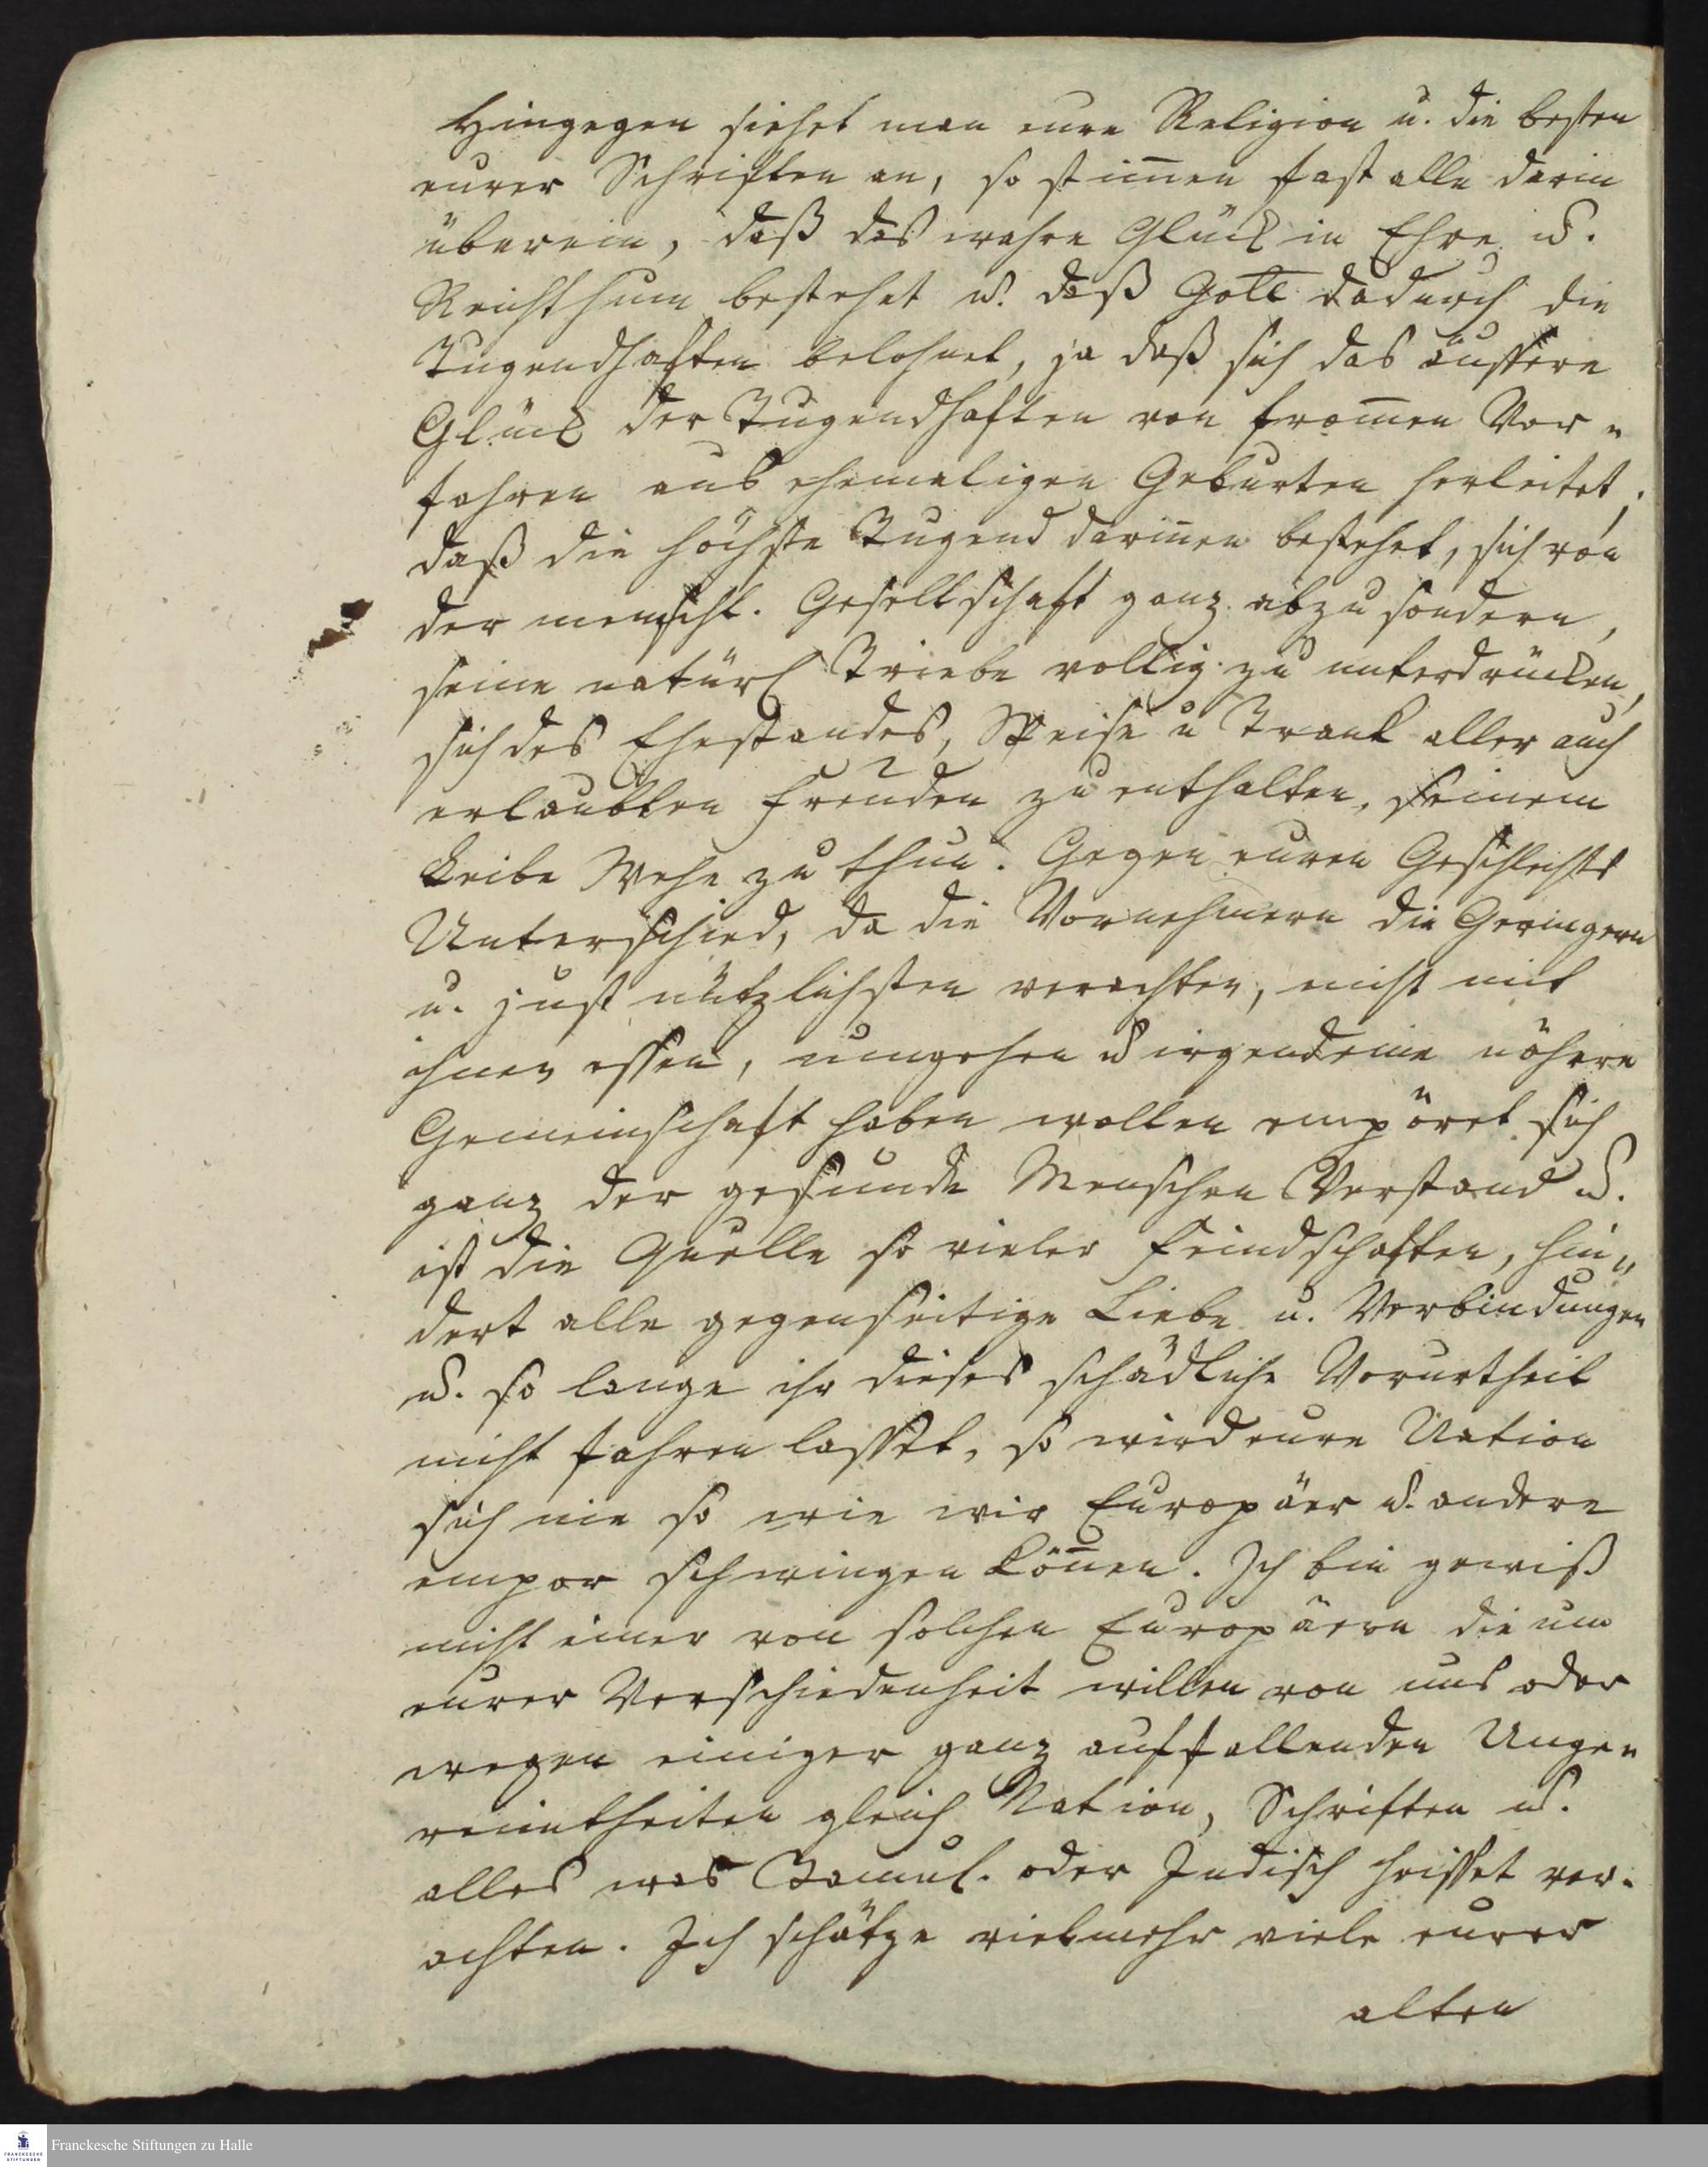 Hingegen siehet man eure Religion u. die besten
eurer Schriften an, so stim̅en fast alle darin
überein, daß das wahre Glück in Ehre u.
Reichthum bestehet u. daß Gott dadurch die
Tugendhaften belohnet, ja daß sich das äussere
Glück der Tugendhaften von from̅en Vor-
fahren aus ehemaligen Geburten herleitet;
daß die höchste Tugend darin̅en bestehet, sich von
der menschl. Gesellschaft ganz abzusondern,
seine natürl Triebe vollig zu unterdrücken,
sich des Ehestandes, Speise u Trank aller auch
erlaubten Freuden zu enthalten, seinem
Leibe Wehe zu thun. Gegen euren Geschlechts
Unterschied, da die Vornehmern die Geringern
u. just nützlichsten verachten, nicht mit
ihnen essen, umgehen u irgendeine nähere
Gemeinschaft haben wollen empöret sich
ganz der gesunde Menschen Verstand u.
ist die Quelle so vieler Feindschaften, hin-
dert alle gegenseitige Liebe u. Verbindungen
u. so lange ihr dieses schädliche Vorurtheil
nicht fahren lasset, so wird eure Nation
sich nie so wie wir Europäer u. andere
empor schwingen kön̅en. Ich bin gewiß
nicht einer von solchen Europäern die um
eurer Verschiedenheit willen von uns oder
wegen einiger ganz auffallenden Unge-
reimtheiten gleich Nation, Schriften u.
alles was Tamul. oder Indisch heisset ver-
achten. Ich schätze vielmehr viele eurer
alten
Franckesche Stiftungen zu Halle
FRANCKESCHE
STIFTUNGEN